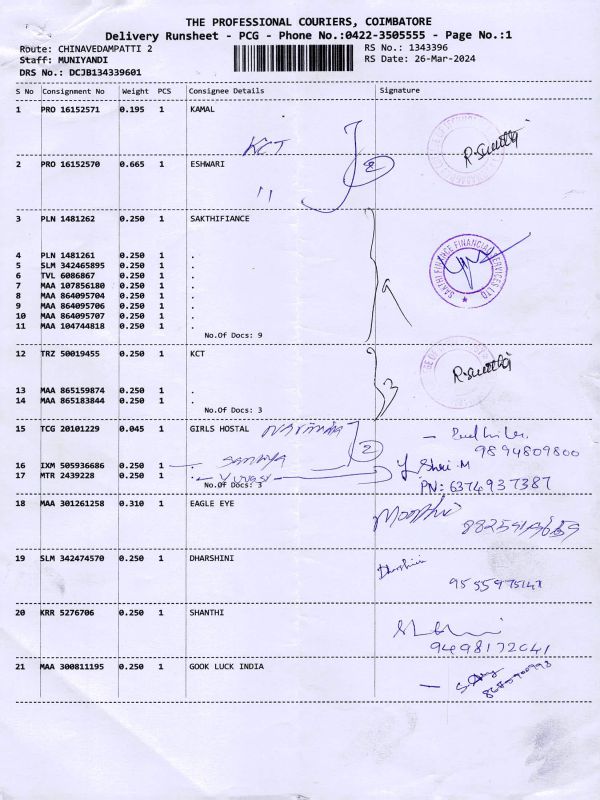 THE PROFESSIONAL COURIERS, COIMBATORE
Delivery Runsheet - PCG - Phone No.:0422-3505555 - Page No.:1
Route: CHINAVEDAMPATTI 2
RS No.: 1343396
Staff: MUNIYANDI
RS Date: 26-Mar-2024
DRS No.: DCJB134339601
S No Consignment No Weight PCS Consignee Details Signature
1 PRO 16152571 0.195 1 KAMAL
R.Swetha
KCT
2 PRO 16152570 0.665 1 ESHWARI
2
"
3 PLN 1481262 0.250 1 SAKTHIFIANCE
SAKTHI FINANCE FINANCIAL SERVICES LTD
4 PLN 1481261 0.250 1 .
5 SLM 342465895 0.250 1 .
6 TVL 6086867 0.250 1 .
7 MAA 107856180 0.250 1 .
8 MAA 864095704 0.250 1 .
9
9 MAA 864095706 0.250 1 .
10 MAA 864095707 0.250 1 .
11 MAA 104744818 0.250 1 .
No.Of Docs: 9
12 TRZ 50019455 0.250 1 KCT
R.Swetha
13 MAA 865159874 0.250 1 .
3
14 MAA 865183844 0.250 1 .
No.Of Docs: 3
15 TCG 20101229 0.045 1 GIRLS HOSTAL
2
9894809800
16 IXM 505936686 0.250 1 .
17 MTR 2439228 0.250 1 .
No.Of Docs: 3
Y. Shri.M
PN: 6374937387
18 MAA 301261258 0.310 1 EAGLE EYE
Moorthi
19 SLM 342474570 0.250 1 DHARSHINI
Dharshini
20 KRR 5276706 0.250 1 SHANTHI
9498172041
21 MAA 300811195 0.250 1 GOOK LUCK INDIA